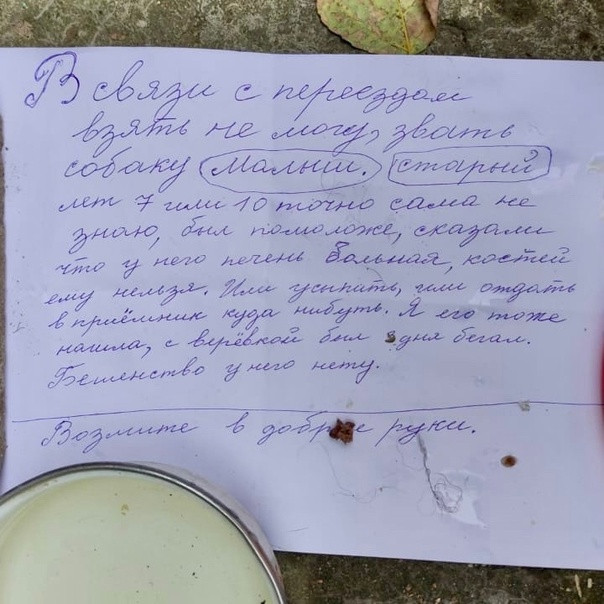 В связи с переездом
взять не могу, звать
собаку Малыш. старый
лет 7 или 10 точно сама не
знаю, был помоложе, сказали
что у него печень больная, костей
ему нельзя. Или усыпать, или отдать
в приёмник куда нибуть. Я его тоже
нашла, с верёвкой был 3 дня бегал.
Бешенство у него нету.
Возмите в добрые руки.